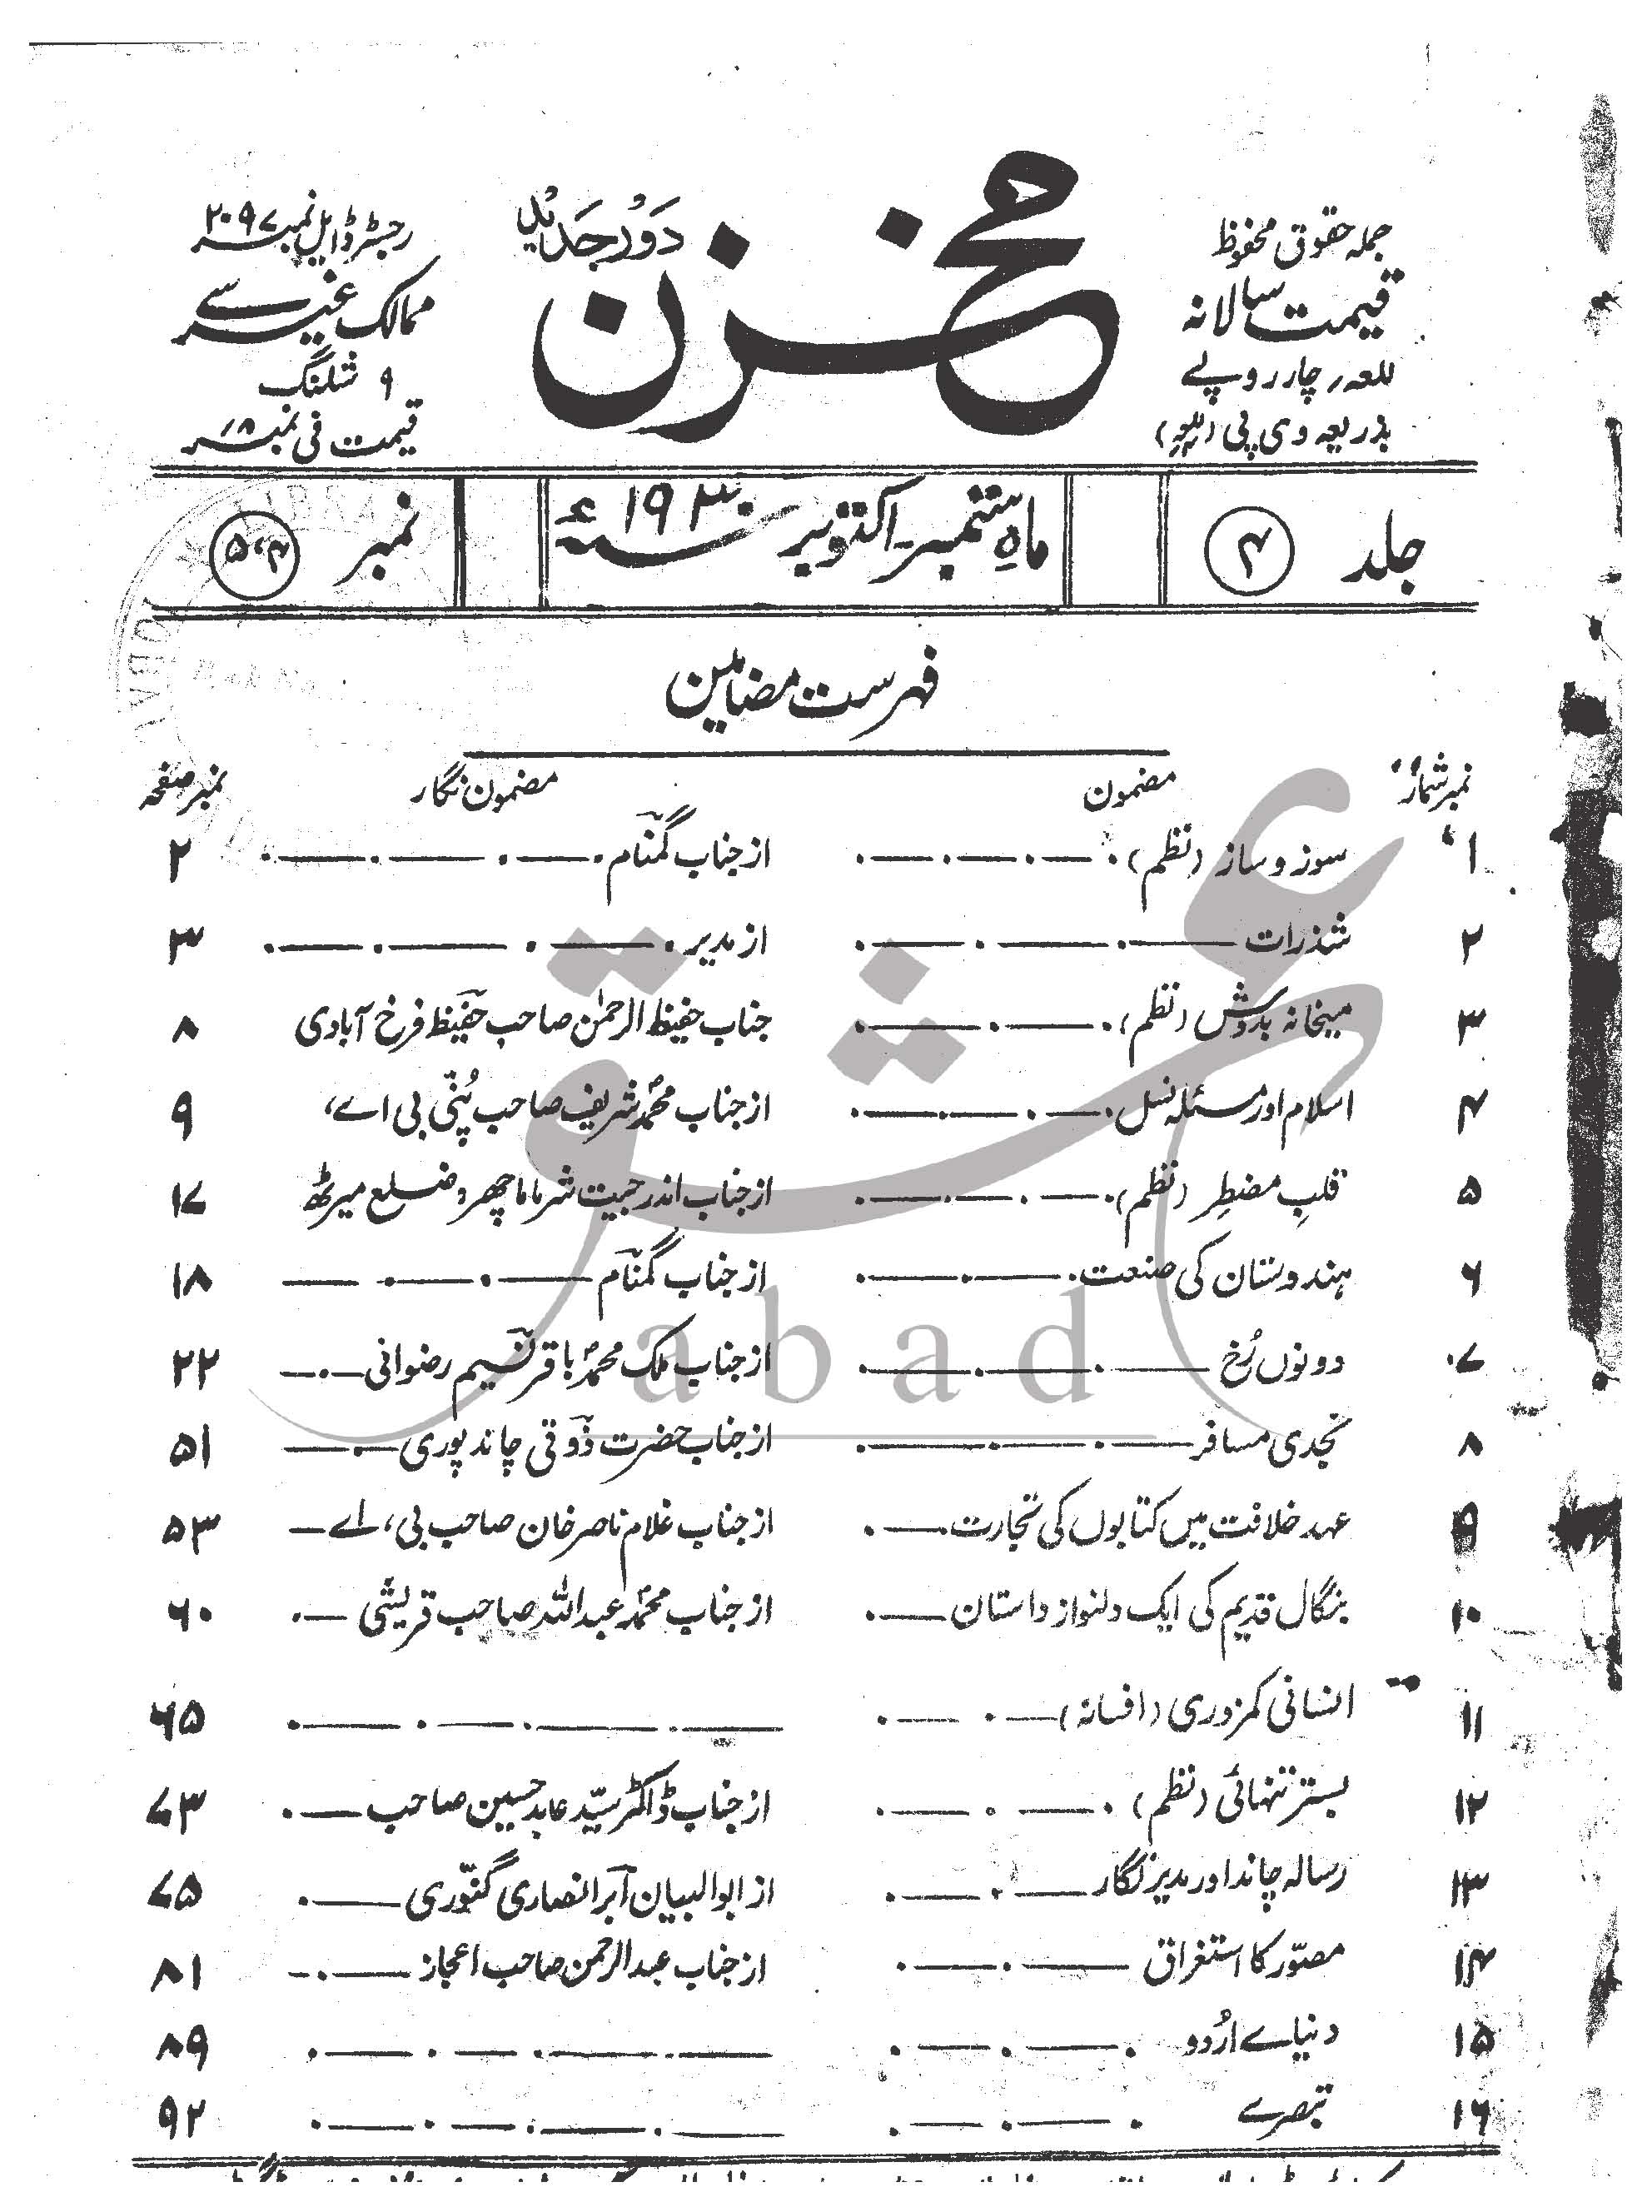 جملہ حقوق محفوظ
قیمت سالانہ
للعہ؍ چار روپے
بذریعہ وی پی
مخزن
دَورِجدید
رجسٹرڈ ایل نمبر ۲۰۹۷
ممالک غیر سے
۹ شلنگ
قیمت فی نمبر ۸؍
جلد ۴ ماہ ستمبر۔اکتوبر سنہ ۱۹۳۰ء نمبر ۴،۵
فہرست مضامین
نمبر شمار مضمون مضمون نگار نمبر صفحہ
۱ سوز و ساز (نظم) از جناب گمنام ۲
۲ شذرات از مدیر ۳
۳ میخانہ بدوش (نظم) جناب حفیظ الرحمٰن صاحب حفیظ فرخ آبادی ۸
۴ اسلام اور مسئلہ نسل از جناب محمد شریف صاحب پنّی بی اے، ۹
۵ قلبِ مضطر (نظم) از جناب اندر جیت شرما ماچھرہ ضلع میرٹھ ۱۷
۶ ہندوستان کی صنعت از جناب گمنام ۱۸
۷ دونوں رُخ از جناب ملک محمد باقر نسیم رضوانی ۲۲
۸ نجدی مسافر از جناب حضرت ذوقی چاند پوری ۵۱
۹ عہد خلافت میں کتابوں کی تجارت از جناب غلام ناصر خان صاحب بی، اے ۵۳
۱۰ بنگال قدیم کی ایک دلنواز داستان از جناب محمد عبداللہ صاحب قریشی ۶۰
۱۱ انسانی کمزوری (افسانہ) ۶۵
۱۲ بستر تنہائی (نظم) از جناب ڈاکٹر سیّد عابد حسین صاحب ۷۳
۱۳ رسالہ چاند اور مدیر نگار از ابوالبیان آبر انصاری گنّوری ۷۵
۱۴ مصوّر کا استغراق از جناب عبدالرحمن صاحب اعجاز ۸۱
۱۵ دنیاے اُردو ۸۹
۱۶ تبصرے ۹۲
عشق
abad
IQBAL